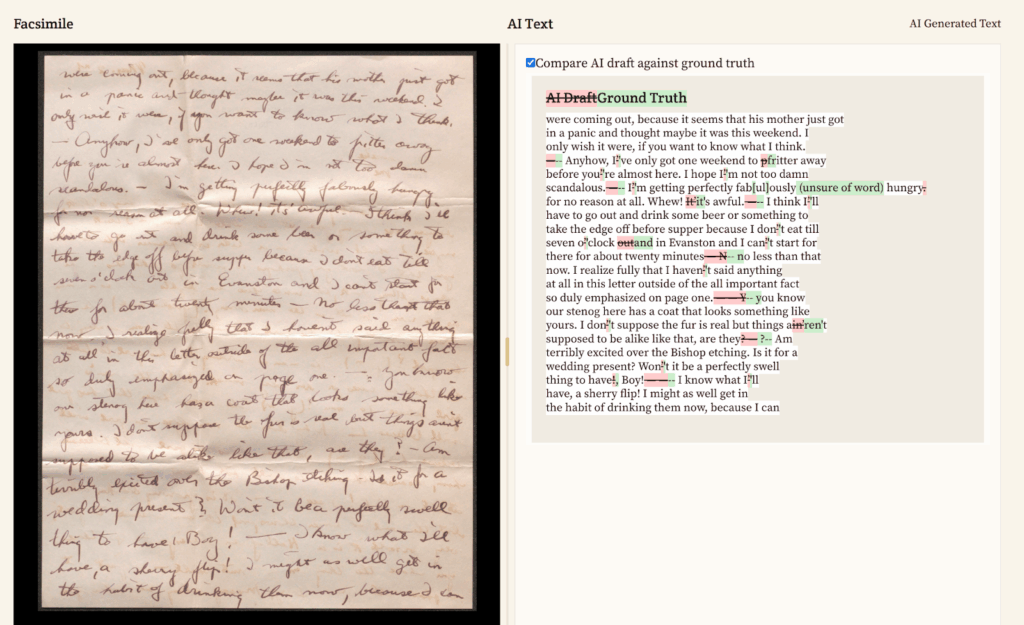 Facsimile
were coming out, because it seems that his mother just got
in a panic and thought maybe it was this weekend. I
only wish it were, if you want to know what I think.
— Anyhow, I've only got one weekend to fritter away
before you're almost here. I hope I'm not too damn
scandalous. — I'm getting perfectly hungry
for no reason at all. Whew! it's awful. — I think I'll
have to go out and drink some beer or something to
take the edge off before supper because I don't eat till
seven o'clock out in Evanston and I can't start for
there for about twenty minutes — No less than that
now. I realize fully that I haven't said anything
at all in this letter outside of the all important fact
so duly emphasized on page one. — You know
our stenog here has a coat that looks something like
yours. I don't suppose the fur is real but things aren't
supposed to be alike like that, are they? — Am
terribly excited over the Bishop etching. Is it for a
wedding present? Won't it be a perfectly swell
thing to have! Boy! — I know what I'll
have, a sherry flip! I might as well get in
the habit of drinking them now, because I can
AI Text
AI Generated Text
Compare AI draft against ground truth
AI DraftGround Truth
were coming out, because it seems that his mother just got
in a panic and thought maybe it was this weekend. I
only wish it were, if you want to know what I think.
—-- Anyhow, I’'ve only got one weekend to pfritter away
before you’'re almost here. I hope I’'m not too damn
scandalous.—-- I’'m getting perfectly fab[ul]ously (unsure of word) hungry.
for no reason at all. Whew! It’it's awful.—-- I think I’'ll
have to go out and drink some beer or something to
take the edge off before supper because I don’'t eat till
seven o’'clock outand in Evanston and I can’'t start for
there for about twenty minutes— N-- no less than that
now. I realize fully that I haven’'t said anything
at all in this letter outside of the all important fact
so duly emphasized on page one.— — Y-- you know
our stenog here has a coat that looks something like
yours. I don’'t suppose the fur is real but things ain’ren't
supposed to be alike like that, are they?— ?-- Am
terribly excited over the Bishop etching. Is it for a
wedding present? Won’'t it be a perfectly swell
thing to have!, Boy!— —-- I know what I’'ll
have, a sherry flip! I might as well get in
the habit of drinking them now, because I can